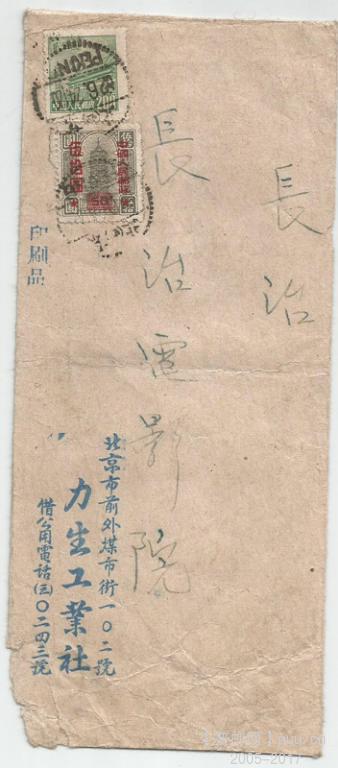 長治
長治電影院
印刷品
北京市前外煤市街一〇二號
力生工業社
借公用電話(三)〇二四三號
中國人民郵政
200
伍拾圓
50
PEKING
2005-2017